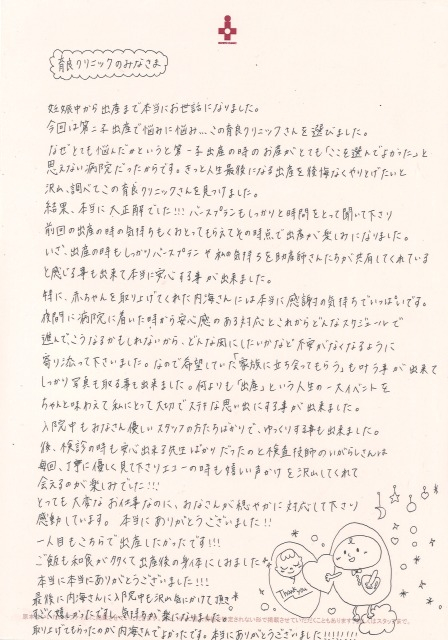 育良クリニックのみなさま
妊娠中から出産まで本当にお世話になりました。
今回は第二子出産で悩みに悩み...この育良クリニックさんを選びました。
なぜとても悩んだかというと第一子出産の時のお産がとても「ここを選んでよかった」と
思えない病院だったからです。きっと人生最後になる出産を後悔なくやりとげたいと
沢山、調べてこの育良クリニックさんを見つけました。
結果、本当に大正解でした!!! バースプランもしっかりと時間をとって聞いて下さり
前回の出産の時の気持ちもくみとってもらえてその時点で出産が楽しみになりました。
いざ、出産の時もしっかりバースプランや私の気持ちを助産師さんたちが共有してくれている
と感じる事も出来て本当に安心する事が出来ました。
特に、赤ちゃんを取り上げてくれた内海さんには本当に感謝の気持ちでいっぱいです。
夜間に病院に着いた時から安心感のある対応とこれからどんなスケジュールで
進んでこうなるかもしれないから、どんな風にしたいかなど不安がなくなるように
寄り添って下さいました。なので希望していた「家族に立ち会ってもらう」も叶う事が出来て
しっかり写真も取る事も出来ました。何よりも「出産」という人生の一大イベントを
ちゃんと味わえて私にとって大切でステキな思い出にする事が出来ました。
入院中もみなさん優しいスタッフの方たちばかりで、ゆっくりする事も出来ました。
後、検診の時も安心出来る先生ばかりだったのと検査技師のいがらしさんは
毎回、丁寧に優しく見て下さりエコーの時も嬉しい声かけを沢山してくれて
会えるのが楽しみでした!!!
とっても大変なお仕事なのに、みなさんが穏やかに対応して下さり
感動しています。本当にありがとうございました!!
一人目もこちらで出産したかったです!!!
ご飯も和食が多くて出産後の身体にしみました
本当に本当にありがとうございました!!!
最後に内海さんに入院中も沢山気にかけて頂き
すごく嬉しかったですし、気持ちが楽になりました。
取り上げてもらったのが内海さんでよかったです。本当にありがとうございました!!!!!!!
Thank you